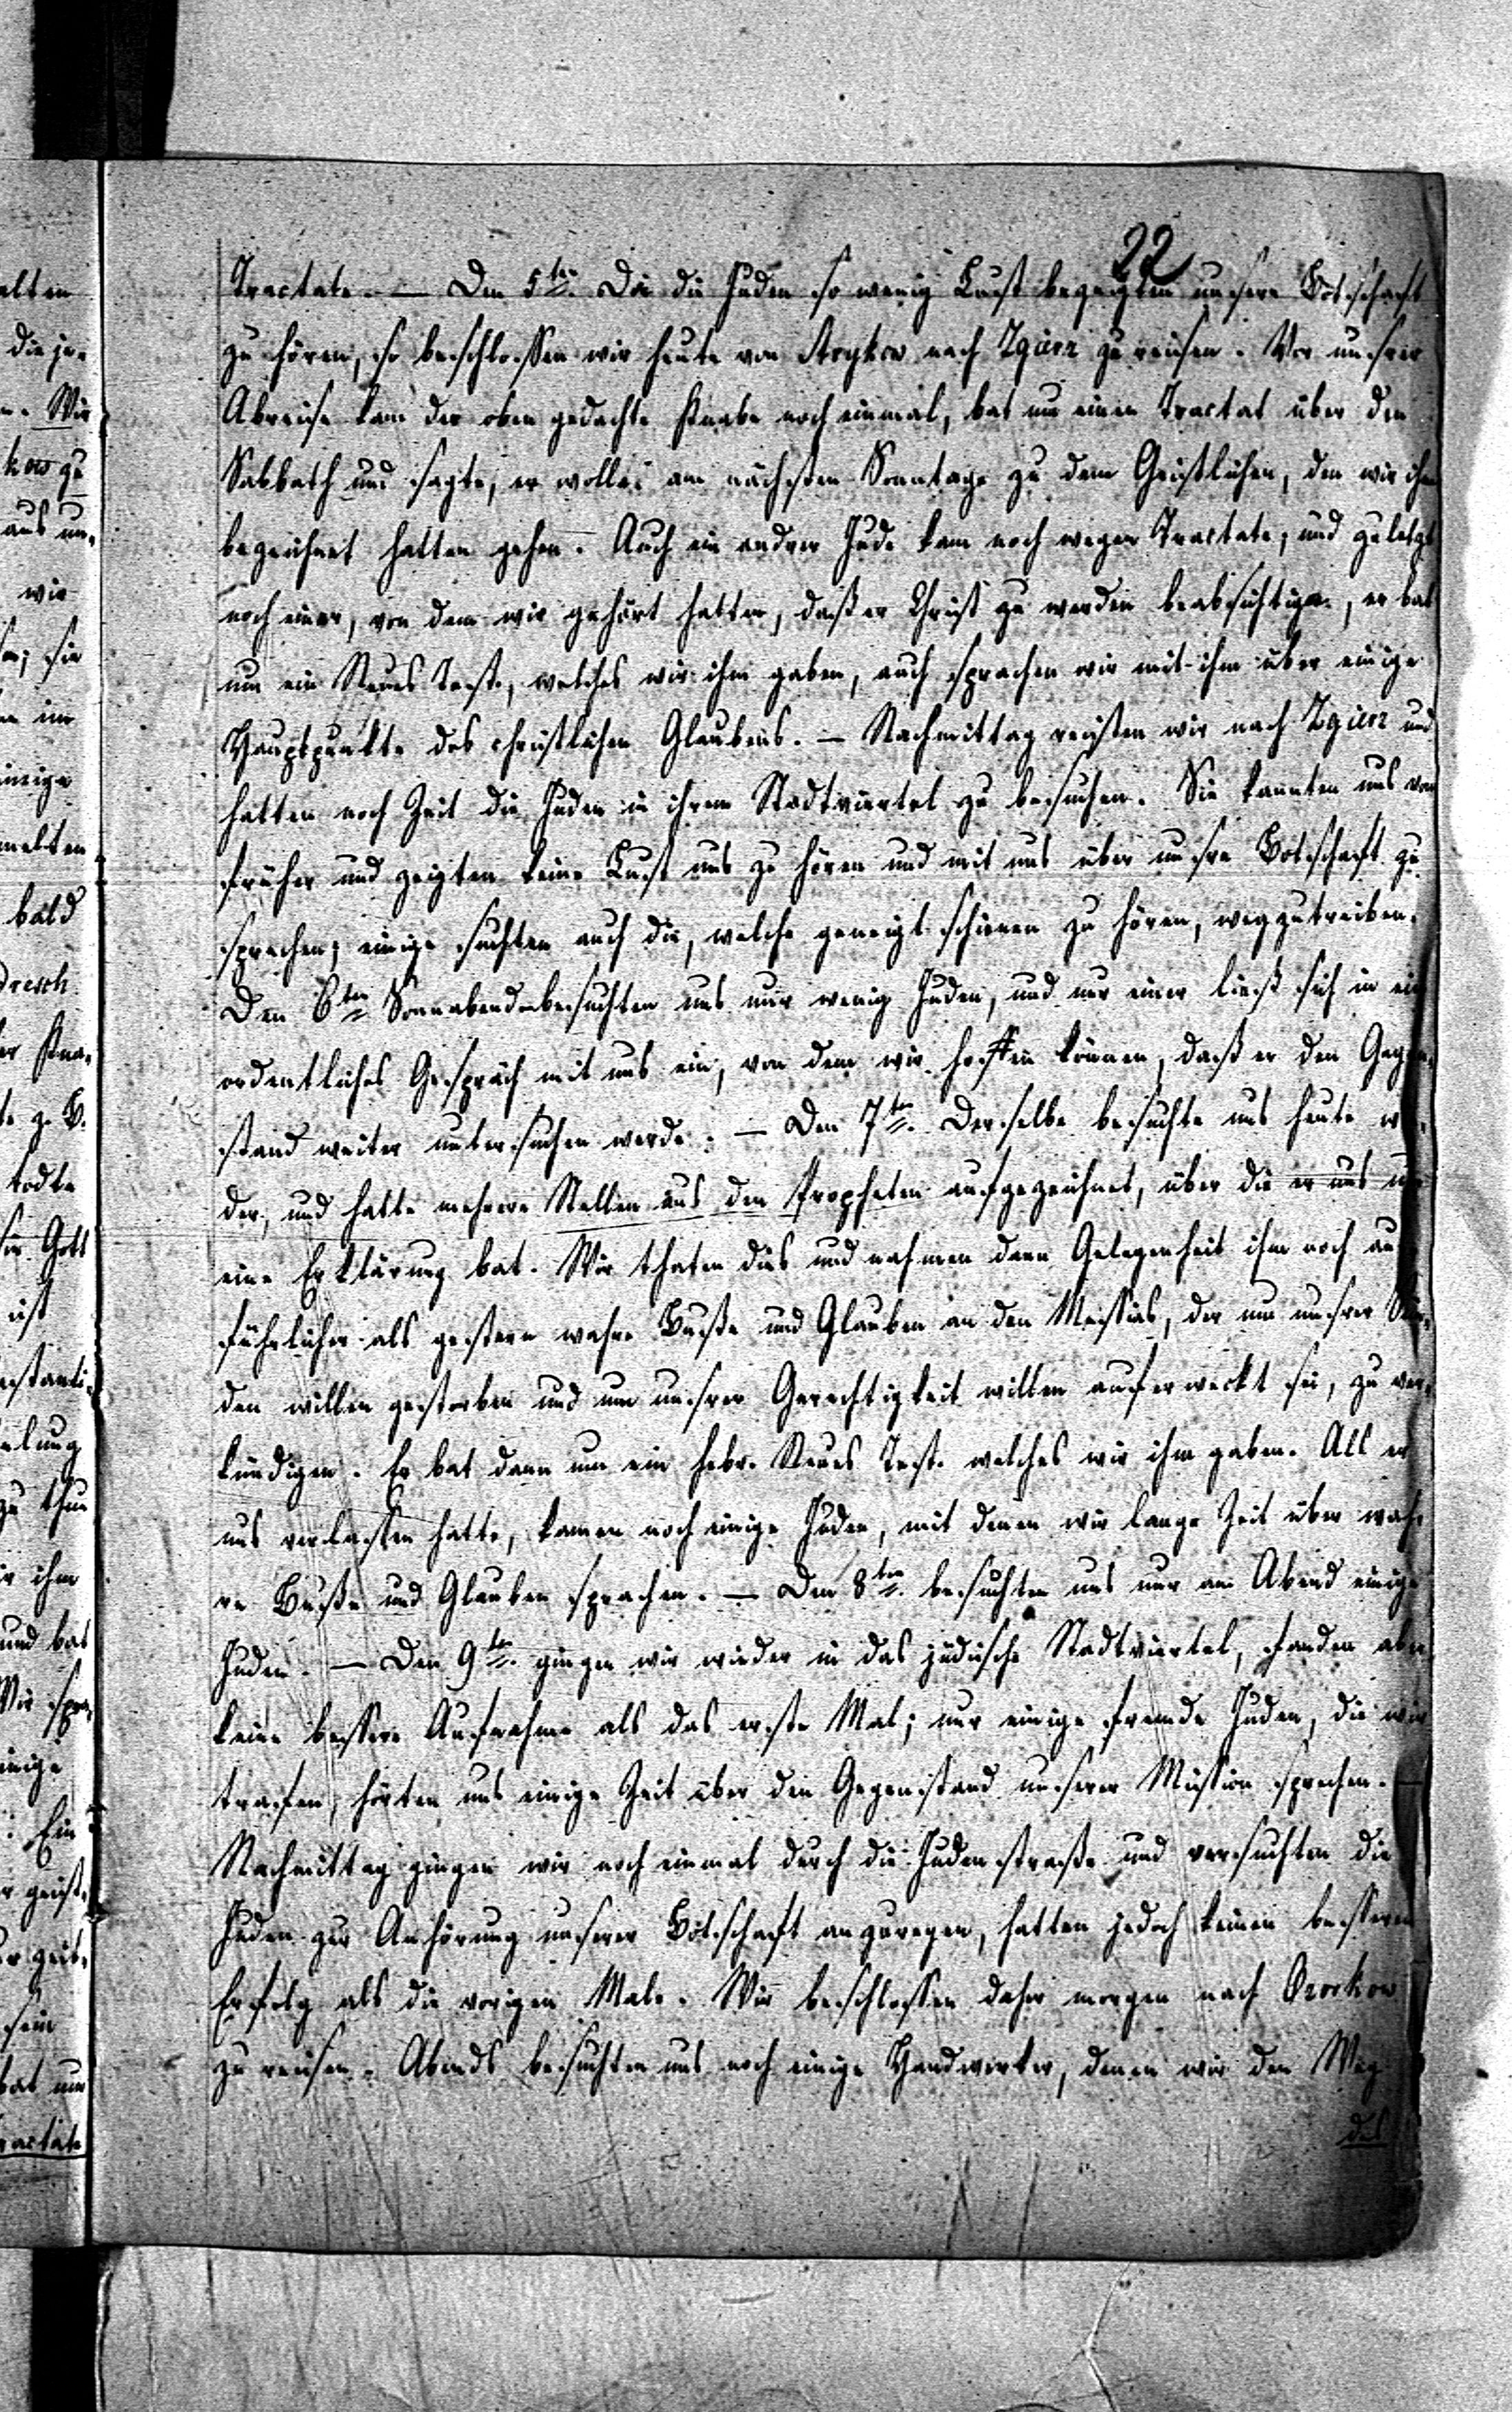 22
Tractate. — Den 5ten. Da die Juden so wenig Lust bezeigten unsere Botschaft
zu hören, so beschlossen wir heute von Strykow nach Zgierz zu reisen. Vor unsrer
Abreise kam der oben gedachte Knabe noch einmal, bat um einen Tractat über den
Sabbath und sagte, er wolle am nächsten Sonntage zu dem Geistlichen, den wir ihm
bezeichnet hatten gehen. Auch ein andrer Jude kam noch wegen Tractate, und zuletzt
noch einer, von dem wir gehört hatten, daß er Christ zu werden beabsichtige, er bat
um ein Neues Test., welches wir ihm gaben, auch sprachen wir mit ihm über einige
Hauptpunkte des christlichen Glaubens. — Nachmittag reisten wir nach Zgierz und
hatten noch Zeit die Juden in ihrem Stadtviertel zu besuchen. Sie kannten uns von
früher und zeigten keine Lust uns zu hören und mit uns über unsre Botschaft zu
sprechen; einige suchten auch die, welche geneigt schienen zu hören, wegzutreiben.
Den 6ten Sonnabend besuchten uns nur wenig Juden, und nur einer ließ sich in ein
ordentliches Gespräch mit uns ein, von dem wir hoffen können, daß er den Gegen-
stand weiter untersuchen werde. — Den 7ten. Derselbe besuchte uns heute wie-
der, und hatte mehrere Stellen aus den Propheten aufgezeichnet, über die er uns um
eine Erklärung bat. Wir thaten dies und nahmen dann Gelegenheit ihm noch aus-
führlicher als gestern wahre Buße und Glauben an den Messias, der um unsrer Sün-
den willen gestorben und um unsrer Gerechtigkeit willen auferweckt sei, zu ver-
kündigen. Er bat dann um ein hebr. Neues Test. welches wir ihm gaben. Als er
uns verlassen hatte, kamen noch einige Juden, mit denen wir lange Zeit über wah-
re Buße und Glauben sprachen. — Den 8ten. besuchten uns nur am Abend einige
Juden. — Den 9ten. gingen wir wieder in das jüdische Stadtviertel, fanden aber
keine bessere Aufnahme als das erste Mal; nur einige fremde Juden, die wir
trafen, hörten uns einige Zeit über den Gegenstand unserer Mission sprechen. —
Nachmittag gingen wir noch einmal durch die Judenstraße und versuchten die
Juden zur Anhörung unserer Botschaft anzuregen, hatten jedoch keinen bessern
Erfolg als die vorigen Male. Wir beschlossen daher morgen nach Ozorkow
zu reisen. Abends besuchten uns noch einige Handwerker, denen wir den Weg
des